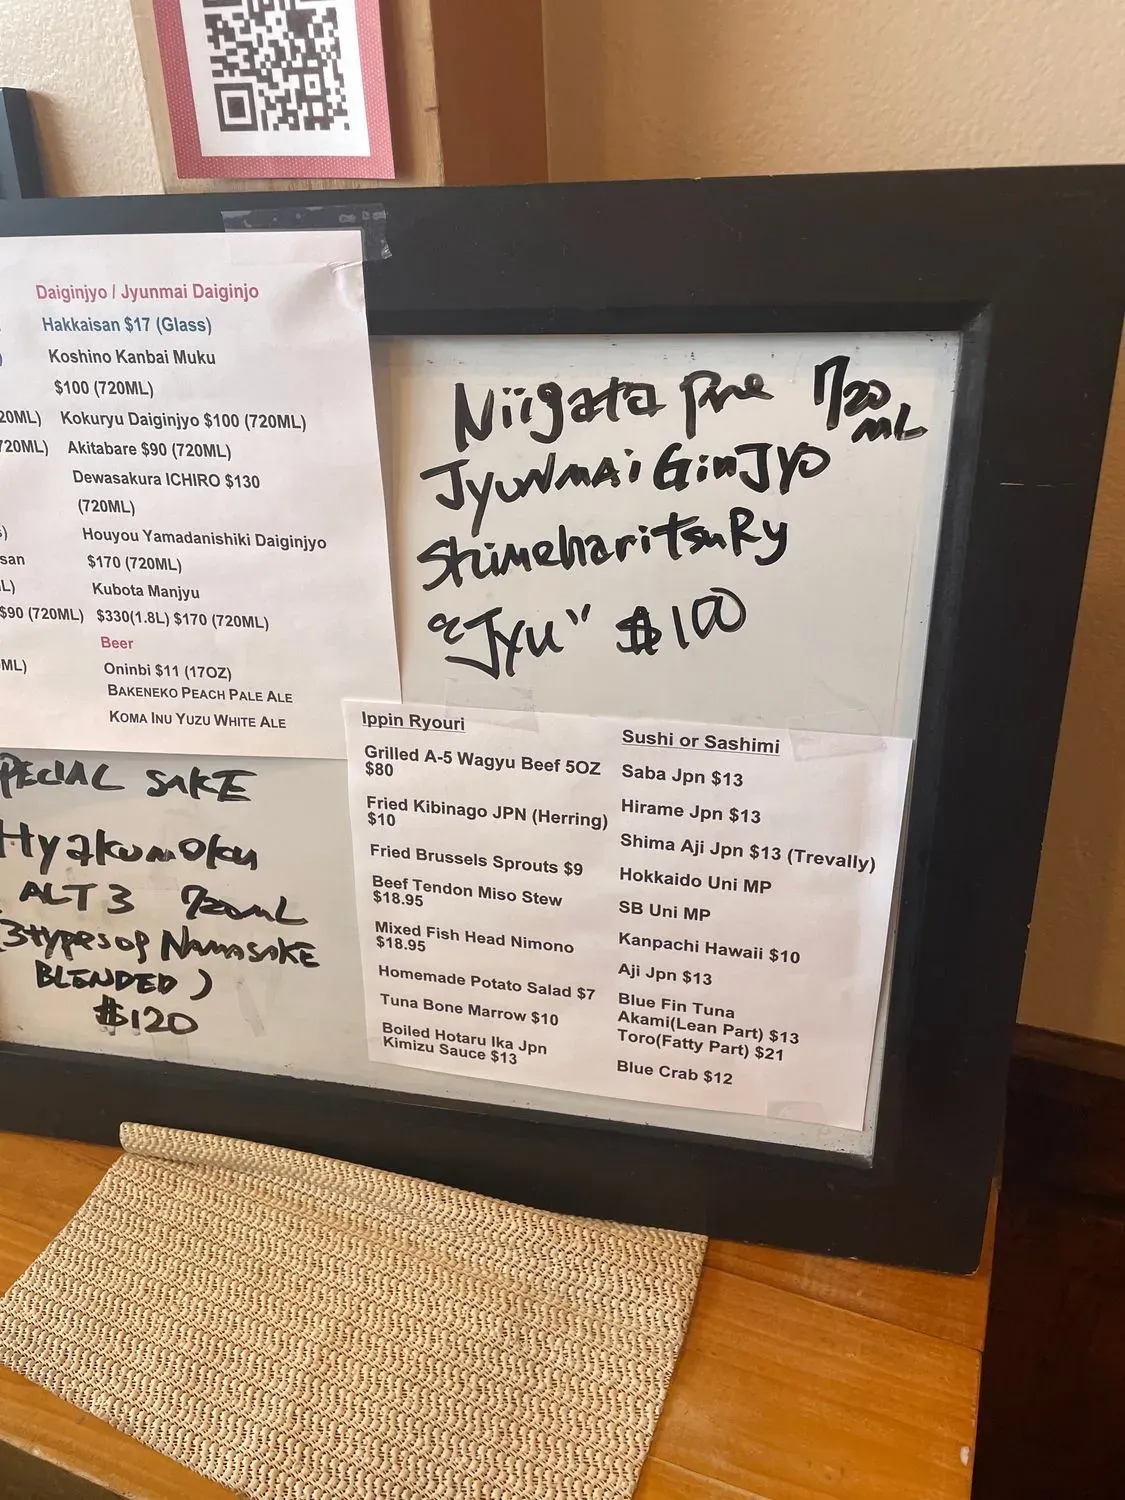 Daiginjyo / Jyunmai Daiginjo
Hakkaisan $17 (Glass)
Koshino Kanbai Muku
$100 (720ML)
20ML) Kokuryu Daiginjyo $100 (720ML)
720ML) Akitabare $90 (720ML)
Dewasakura ICHIRO $130
(720ML)
Houyou Yamadanishiki Daiginjyo
san $170 (720ML)
L) Kubota Manjyu
$90 (720ML) $330(1.8L) $170 (720ML)
Beer
ML) Oninbi $11 (17OZ)
BAKENEKO PEACH PALE ALE
KOMA INU YUZU WHITE ALE
Niigata pre 720
ML
JyuNmai GinJyo
ShimehariTsuRy
"Jyu" $100
PECIAL SAKE
Hyakumoku
ALT 3 720mL
(3 types of NamasaKE
BLENDED)
$120
Ippin Ryouri
Grilled A-5 Wagyu Beef 5OZ
$80
Fried Kibinago JPN (Herring)
$10
Fried Brussels Sprouts $9
Beef Tendon Miso Stew
$18.95
Mixed Fish Head Nimono
$18.95
Homemade Potato Salad $7
Tuna Bone Marrow $10
Boiled Hotaru Ika Jpn
Kimizu Sauce $13
Sushi or Sashimi
Saba Jpn $13
Hirame Jpn $13
Shima Aji Jpn $13 (Trevally)
Hokkaido Uni MP
SB Uni MP
Kanpachi Hawaii $10
Aji Jpn $13
Blue Fin Tuna
Akami(Lean Part) $13
Toro(Fatty Part) $21
Blue Crab $12